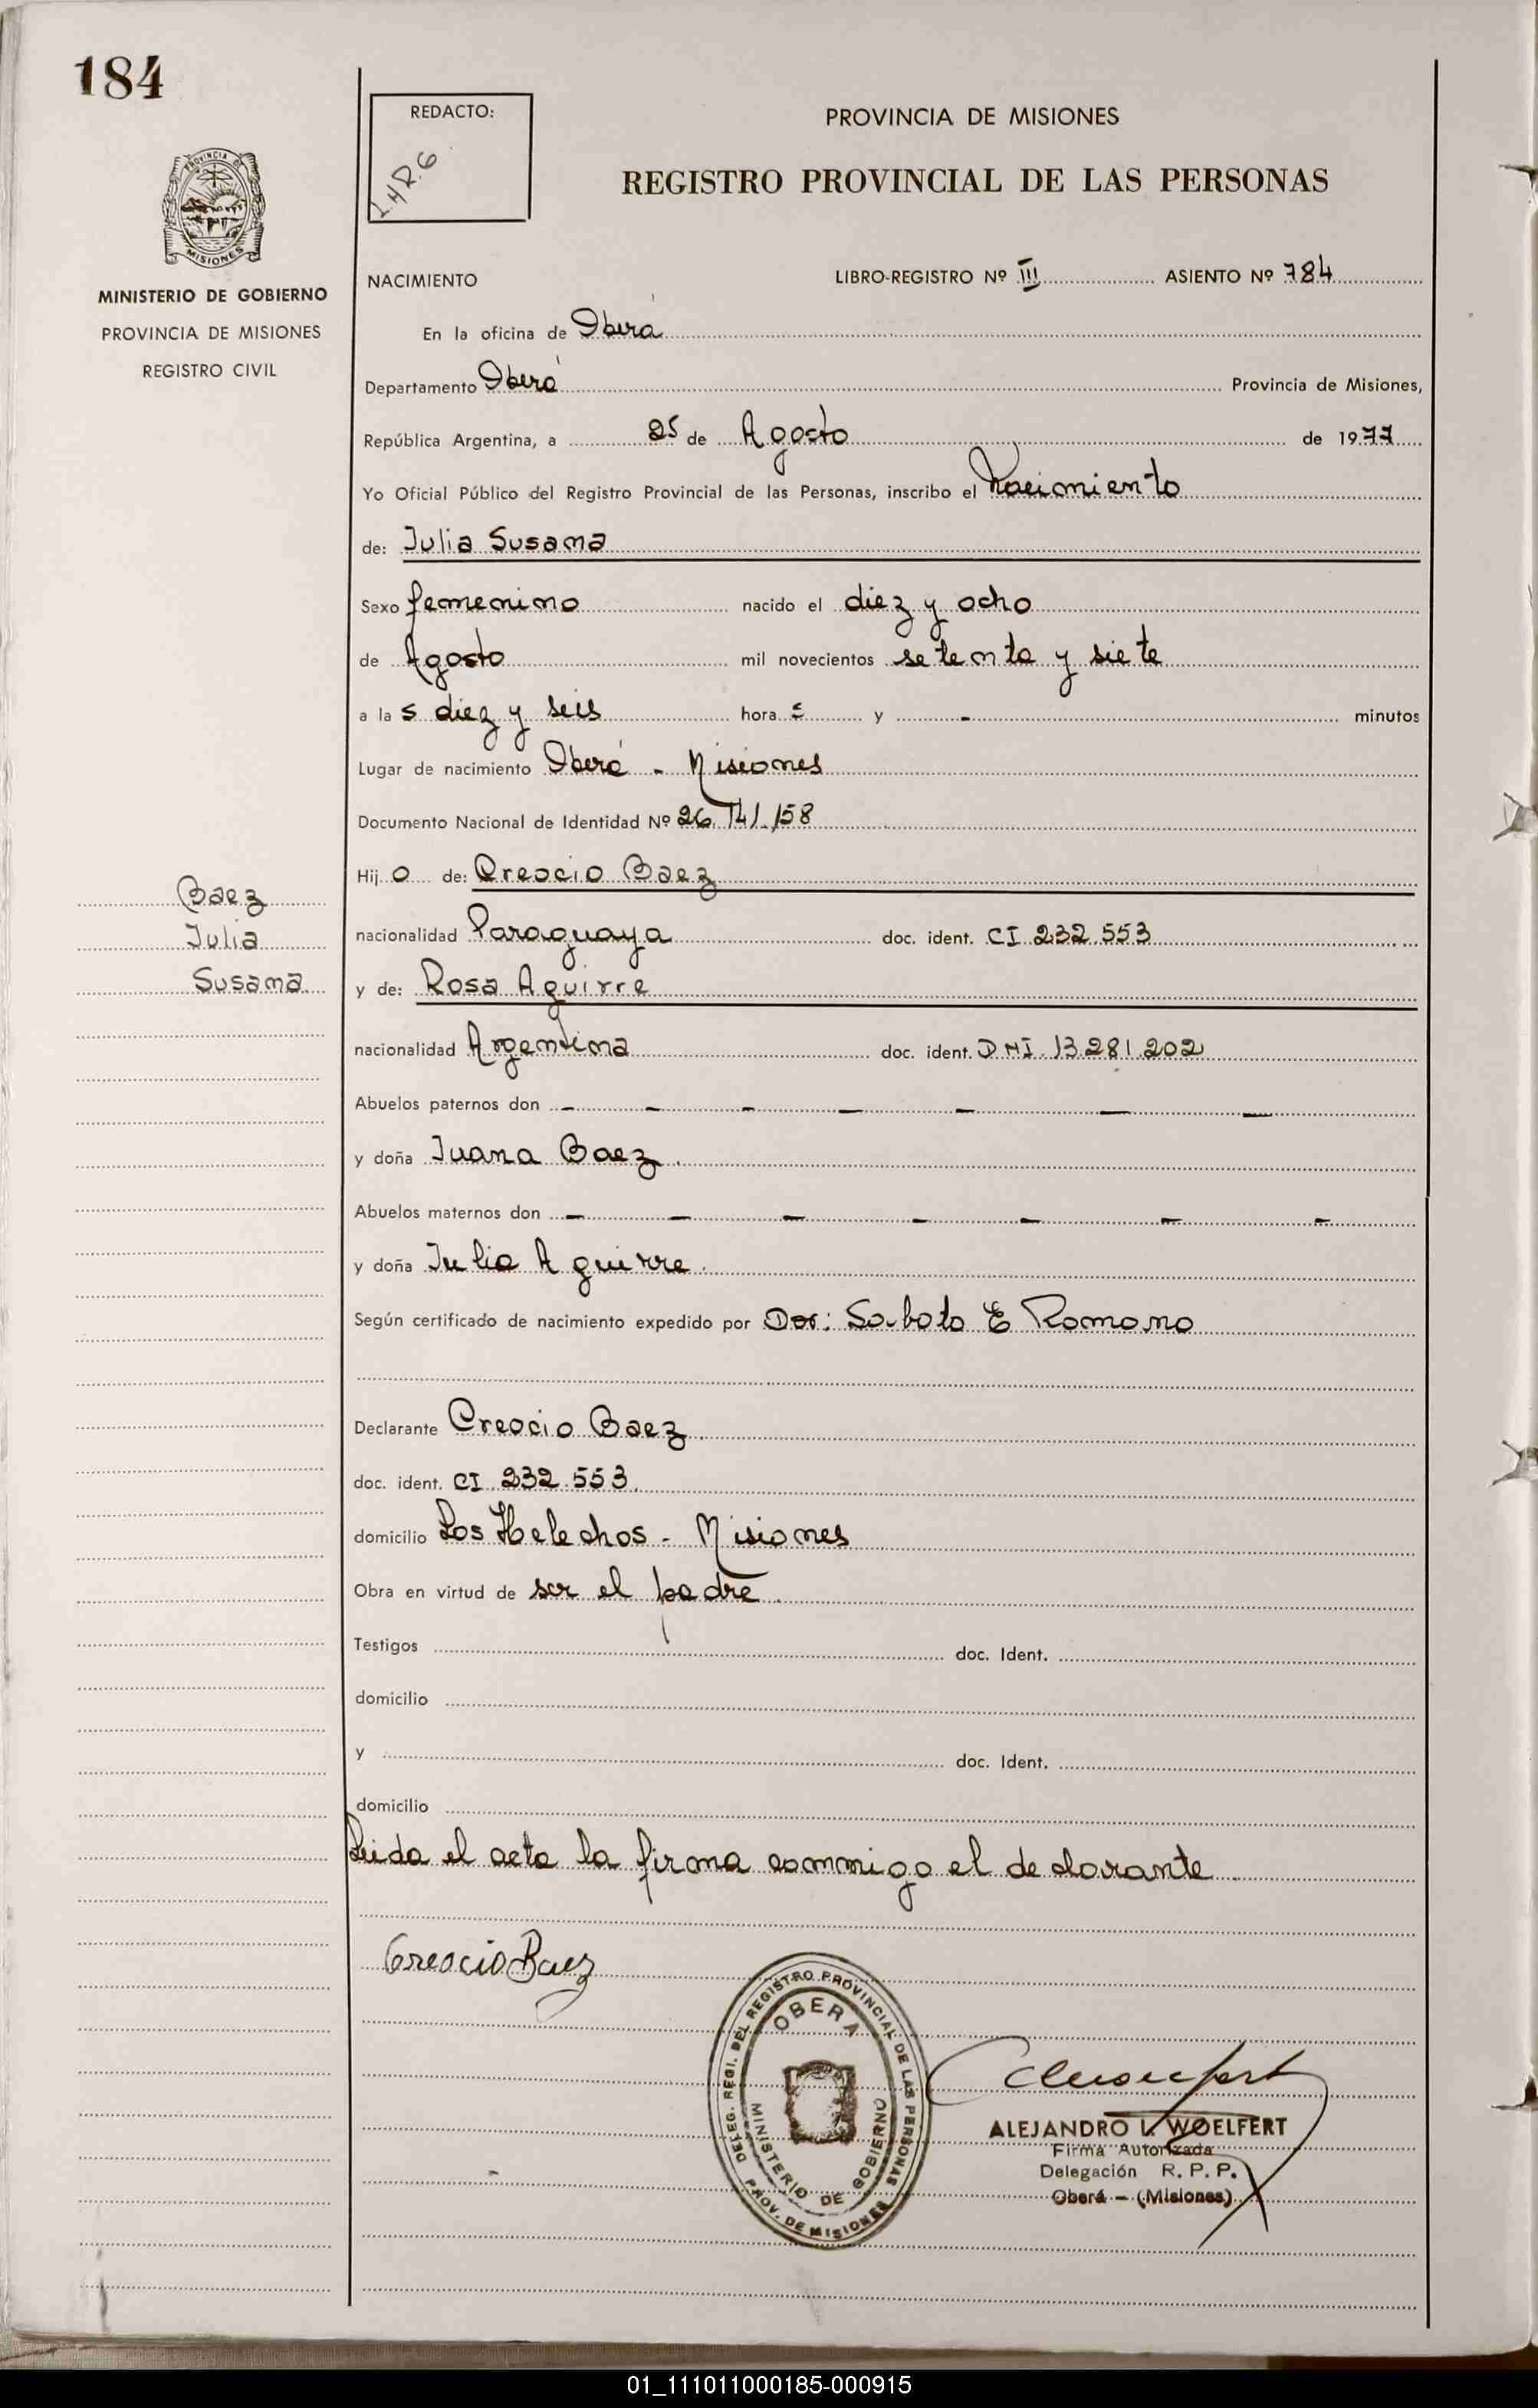 184
REDACTO:
PROVINCIA DE MISIONES
REGISTRO PROVINCIAL DE LAS PERSONAS
PROVINCIA D
MISIONES
MINISTERIO DE GOBIERNO
PROVINCIA DE MISIONES
REGISTRO CIVIL
NACIMIENTO LIBRO-REGISTRO Nº III ASIENTO Nº 784
En la oficina de Oberá
Departamento Oberá Provincia de Misiones,
República Argentina, a 25 de Agosto de 1977
Yo Oficial Público del Registro Provincial de las Personas, inscribo el Nacimiento
de: Julia Susana
Sexo femenino nacido el diez y ocho
de Agosto mil novecientos setenta y siete
a la s diez y seis hora s y - minutos
Lugar de nacimiento Oberá - Misiones
Documento Nacional de Identidad Nº 26.141.158
Hij o de: Creocio Baez
nacionalidad Paraguaya doc. ident. CI 232.553
y de: Rosa Aguirre
nacionalidad Argentina doc. ident. DNI. 13.281.202
Baez
Julia
Susana
Abuelos paternos don - - - - - - -
y doña Juana Baez.
Abuelos maternos don - - - - - - -
y doña Julia Aguirre.
Según certificado de nacimiento expedido por Dor: Sabato E Romano
Declarante Creocio Baez.
doc. ident. CI 232.553.
domicilio Los Helechos - Misiones
Obra en virtud de ser el padre.
Testigos doc. Ident.
domicilio
y doc. Ident.
domicilio
Leida el acta la firma conmigo el declarante
Creocio Baez
DELEG. REGI. DEL REGISTRO PROVINCIAL DE LAS PERSONAS
OBERA
MINISTERIO DE GOBIERNO
PROV. DE MISIONES
ALEJANDRO L. WOELFERT
Firma Autorizada
Delegación R. P. P.
Oberá - (Misiones)
01_111011000185-000915